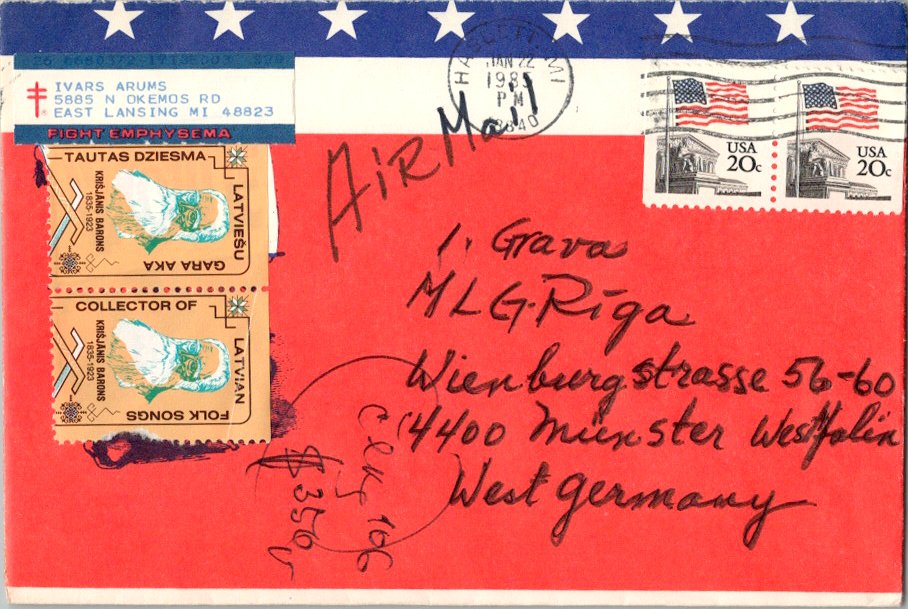 IVARS ARUMS
5885 N OKEMOS RD
EAST LANSING MI 48823
FIGHT EMPHYSEMA
HASLETT, MI
JAN 22
1985
PM
48840
AIR Mail
USA
20c
USA
20c
TAUTAS DZIESMA
LATVIEŠU
GARA AKA
KRIŠJĀNIS BARONS
1835-1923
COLLECTOR OF
LATVIAN
FOLK SONGS
KRIŠJĀNIS BARONS
1835-1923
I. Grava
MLG-Rīga
Wienburgstrasse 56-60
4400 Münster Westfalin
West Germany
106